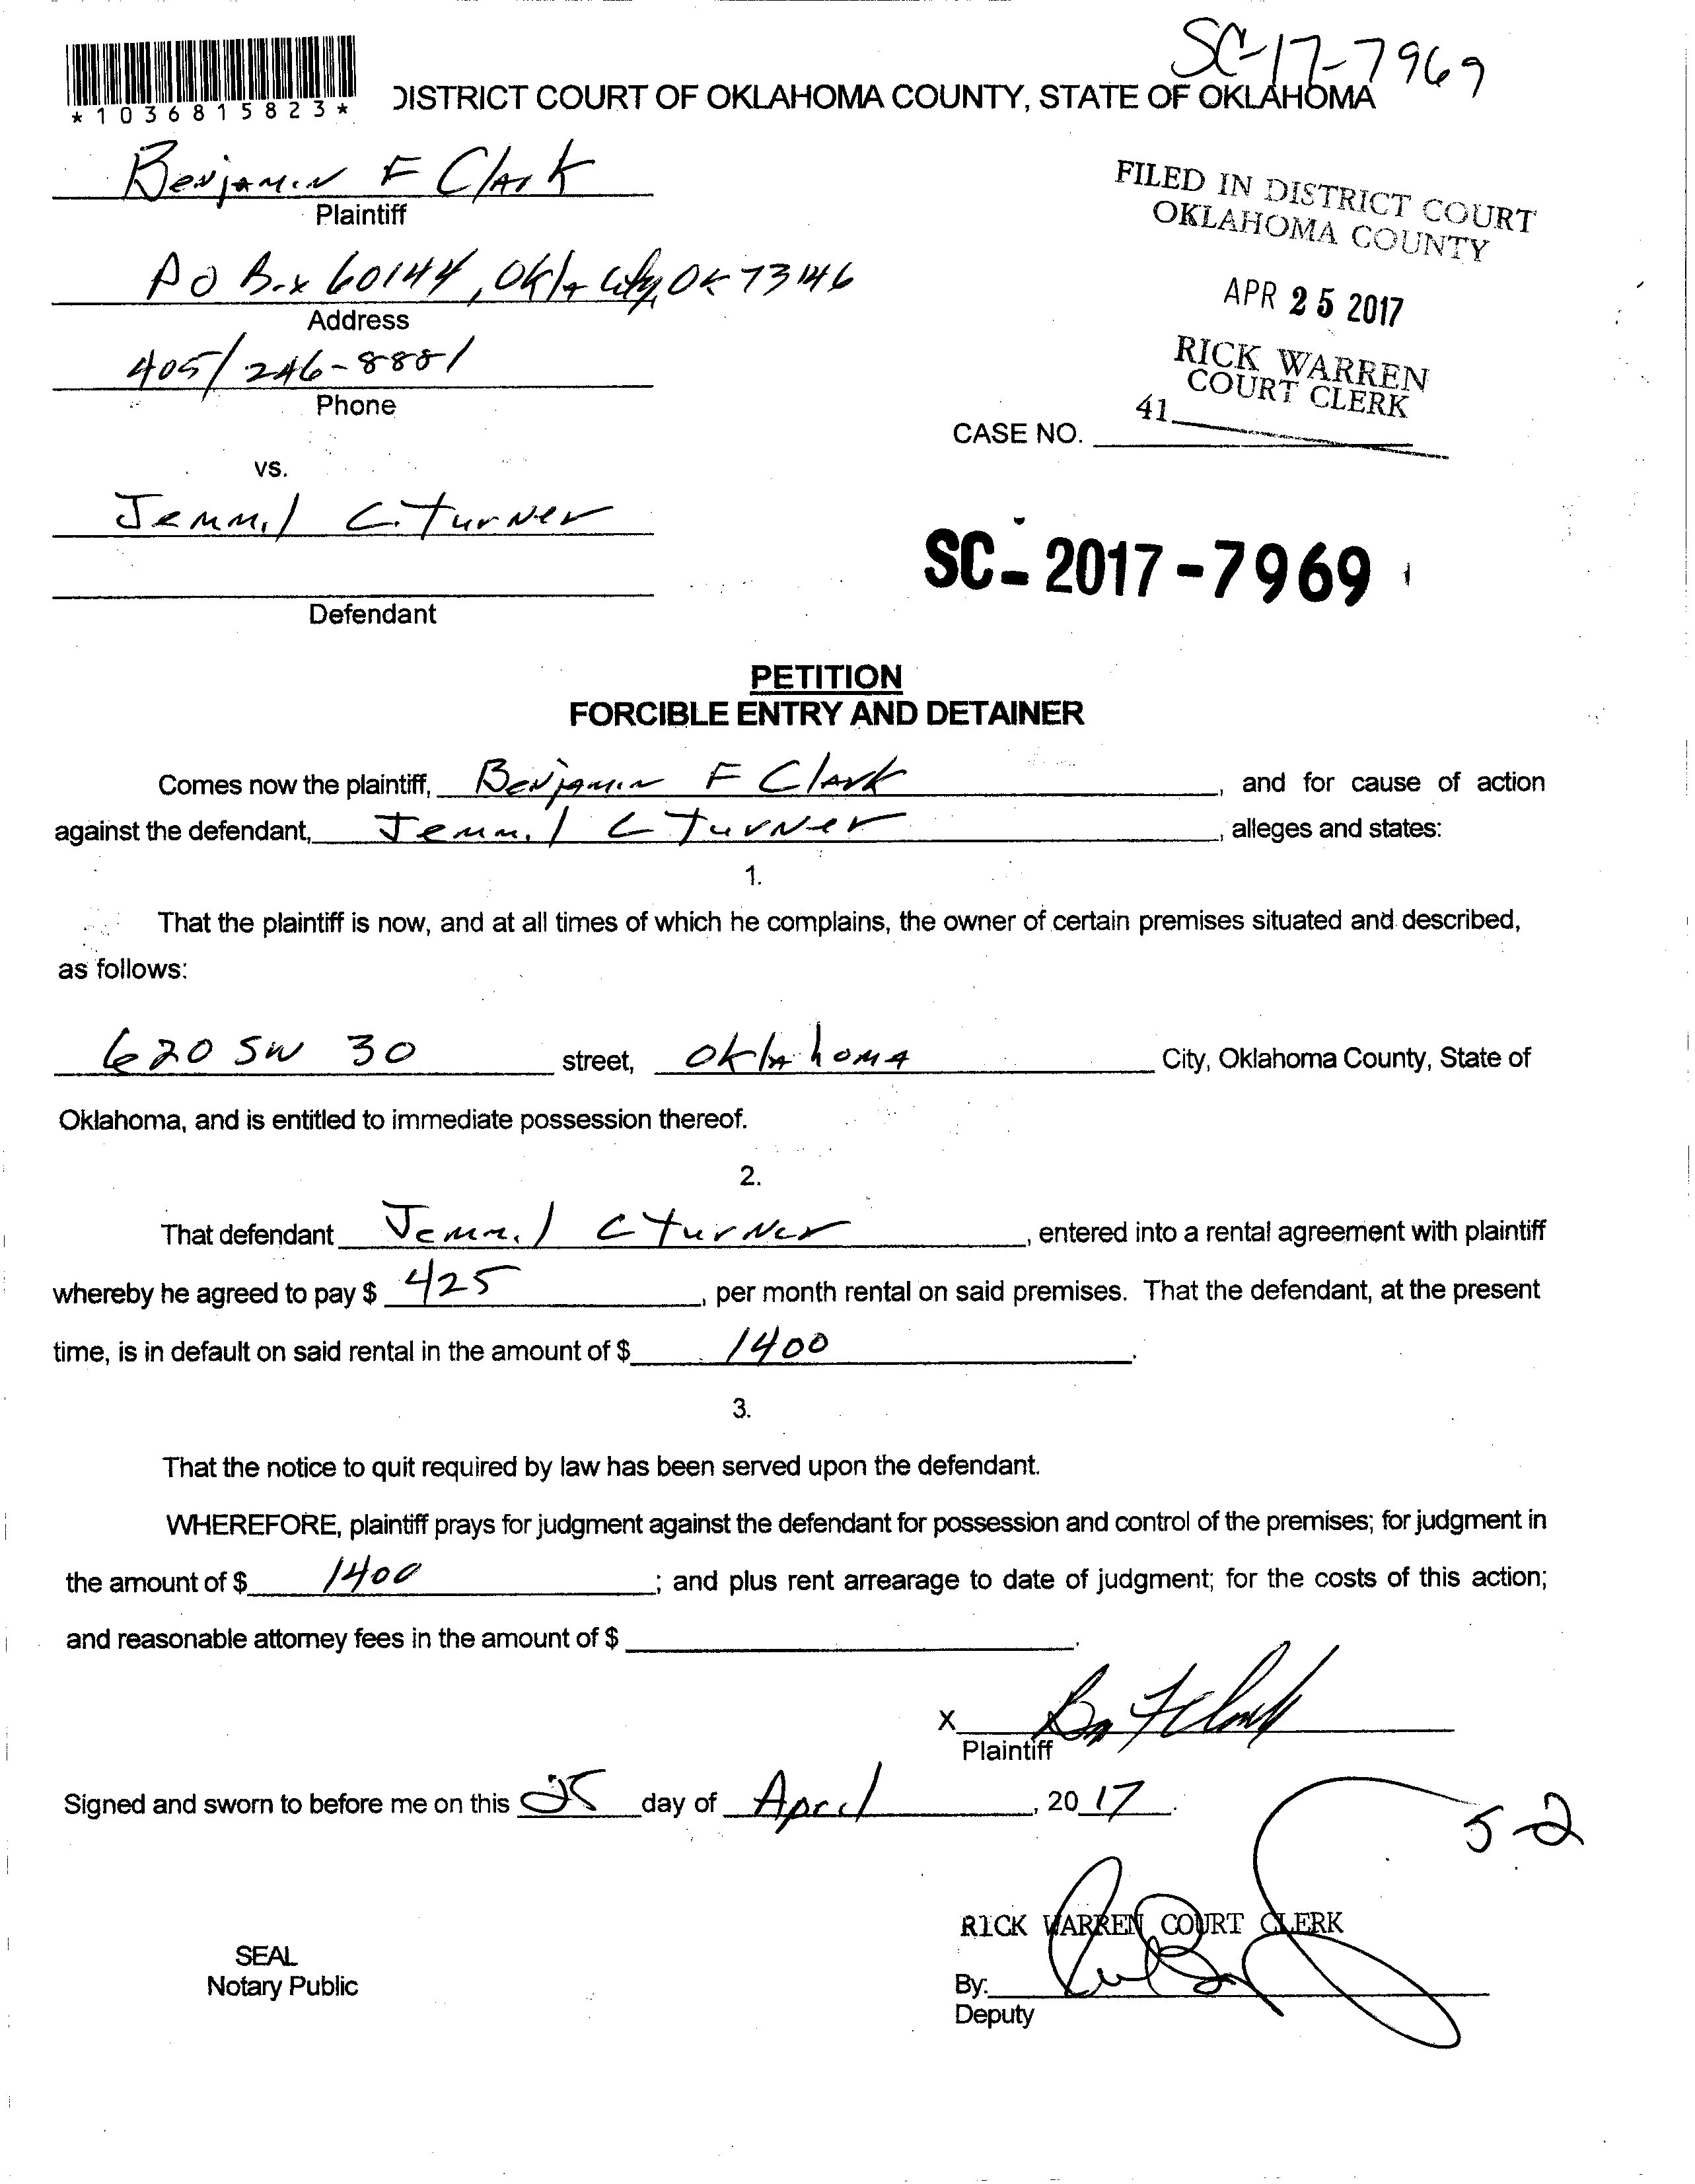 SC-17-7969
*1036815823*
DISTRICT COURT OF OKLAHOMA COUNTY, STATE OF OKLAHOMA
Benjamin F Clark
Plaintiff
FILED IN DISTRICT COURT
OKLAHOMA COUNTY
PO Box 60144, Okla City, OK 73146
Address
APR 25 2017
405/246-8881
Phone
RICK WARREN
COURT CLERK
41
CASE NO.
vs.
Jemmil C. Turner
SC-2017-7969
Defendant
PETITION
FORCIBLE ENTRY AND DETAINER
Comes now the plaintiff, Benjamin F Clark, and for cause of action
against the defendant, Jemmil C Turner, alleges and states:
1.
That the plaintiff is now, and at all times of which he complains, the owner of certain premises situated and described,
as follows:
620 SW 30 street, Oklahoma City, Oklahoma County, State of
Oklahoma, and is entitled to immediate possession thereof.
2.
That defendant Jemmil C Turner, entered into a rental agreement with plaintiff
whereby he agreed to pay $ 425, per month rental on said premises. That the defendant, at the present
time, is in default on said rental in the amount of $ 1400.
3.
That the notice to quit required by law has been served upon the defendant.
WHEREFORE, plaintiff prays for judgment against the defendant for possession and control of the premises; for judgment in
the amount of $ 1400; and plus rent arrearage to date of judgment; for the costs of this action;
and reasonable attorney fees in the amount of $ .
X
Plaintiff
Signed and sworn to before me on this 25 day of April, 2017.
5-2
RICK WARREN COURT CLERK
SEAL
Notary Public
By:
Deputy